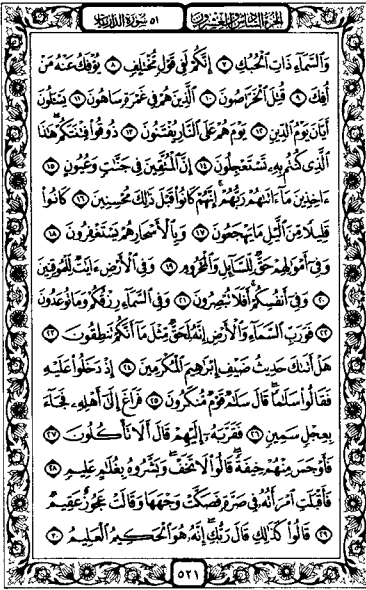 الجزء السادس والعشرون ٥١ سورة الذاريات
وَٱلسَّمَآءِ ذَاتِ ٱلْحُبُكِ ٧ إِنَّكُمْ لَفِى قَوْلٍ مُّخْتَلِفٍ ٨ يُؤْفَكُ عَنْهُ مَنْ
أُفِكَ ٩ قُتِلَ ٱلْخَرَّٰصُونَ ١٠ ٱلَّذِينَ هُمْ فِى غَمْرَةٍ سَاهُونَ ١١ يَسْـَٔلُونَ
أَيَّانَ يَوْمُ ٱلدِّينِ ١٢ يَوْمَ هُمْ عَلَى ٱلنَّارِ يُفْتَنُونَ ١٣ ذُوقُوا۟ فِتْنَتَكُمْ هَٰذَا
ٱلَّذِى كُنتُم بِهِۦ تَسْتَعْجِلُونَ ١٤ إِنَّ ٱلْمُتَّقِينَ فِى جَنَّٰتٍ وَعُيُونٍ ١٥
ءَاخِذِينَ مَآ ءَاتَىٰهُمْ رَبُّهُمْ إِنَّهُمْ كَانُوا۟ قَبْلَ ذَٰلِكَ مُحْسِنِينَ ١٦ كَانُوا۟
قَلِيلًا مِّنَ ٱلَّيْلِ مَا يَهْجَعُونَ ١٧ وَبِٱلْأَسْحَارِ هُمْ يَسْتَغْفِرُونَ ١٨
وَفِىٓ أَمْوَٰلِهِمْ حَقٌّ لِّلسَّآئِلِ وَٱلْمَحْرُومِ ١٩ وَفِى ٱلْأَرْضِ ءَايَٰتٌ لِّلْمُوقِنِينَ
٢٠ وَفِىٓ أَنفُسِكُمْ أَفَلَا تُبْصِرُونَ ٢١ وَفِى ٱلسَّمَآءِ رِزْقُكُمْ وَمَا تُوعَدُونَ
٢٢ فَوَرَبِّ ٱلسَّمَآءِ وَٱلْأَرْضِ إِنَّهُۥ لَحَقٌّ مِّثْلَ مَآ أَنَّكُمْ تَنطِقُونَ ٢٣
هَلْ أَتَىٰكَ حَدِيثُ ضَيْفِ إِبْرَٰهِيمَ ٱلْمُكْرَمِينَ ٢٤ إِذْ دَخَلُوا۟ عَلَيْهِ
فَقَالُوا۟ سَلَٰمًا قَالَ سَلَٰمٌ قَوْمٌ مُّنكَرُونَ ٢٥ فَرَاغَ إِلَىٰٓ أَهْلِهِۦ فَجَآءَ
بِعِجْلٍ سَمِينٍ ٢٦ فَقَرَّبَهُۥٓ إِلَيْهِمْ قَالَ أَلَا تَأْكُلُونَ ٢٧
فَأَوْجَسَ مِنْهُمْ خِيفَةً قَالُوا۟ لَا تَخَفْ وَبَشَّرُوهُ بِغُلَٰمٍ عَلِيمٍ ٢٨
فَأَقْبَلَتِ ٱمْرَأَتُهُۥ فِى صَرَّةٍ فَصَكَّتْ وَجْهَهَا وَقَالَتْ عَجُوزٌ عَقِيمٌ
٢٩ قَالُوا۟ كَذَٰلِكِ قَالَ رَبُّكِ إِنَّهُۥ هُوَ ٱلْحَكِيمُ ٱلْعَلِيمُ ٣٠
٥٢١